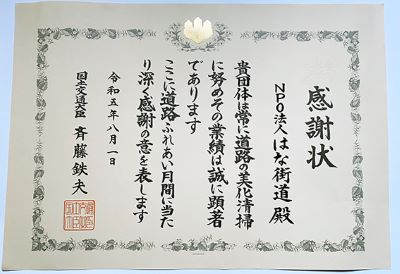 感謝状
NPO法人はな街道 殿
貴団体は常に道路の美化清掃
に努めその業績は誠に顕著
であります
ここに道路ふれあい月間に当た
り深く感謝の意を表します
令和五年八月一日
国土交通大臣 斉藤鉄夫